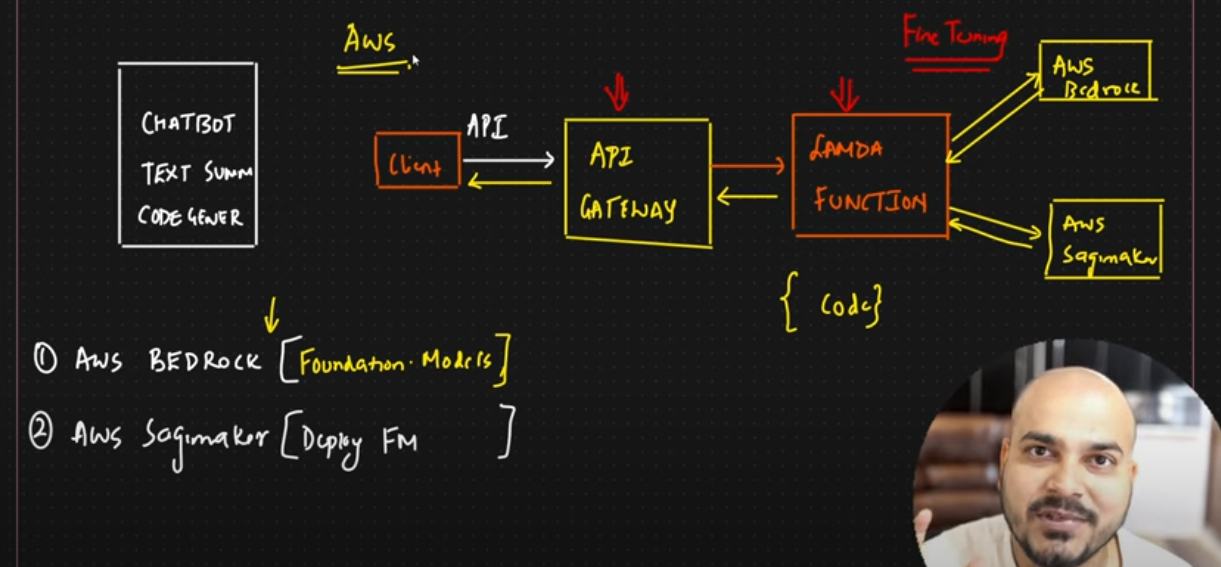 Aws
Fine Tuning
CHATBOT
TEXT SUMM
CODE GENER
Client
API
API
GATEWAY
LAMDA
FUNCTION
AWS
Bedrock
AWS
Sagimaker
{ Code}
① AWS BEDROCK [Foundation. Models]
② AWS Sagimaker [Deploy FM ]